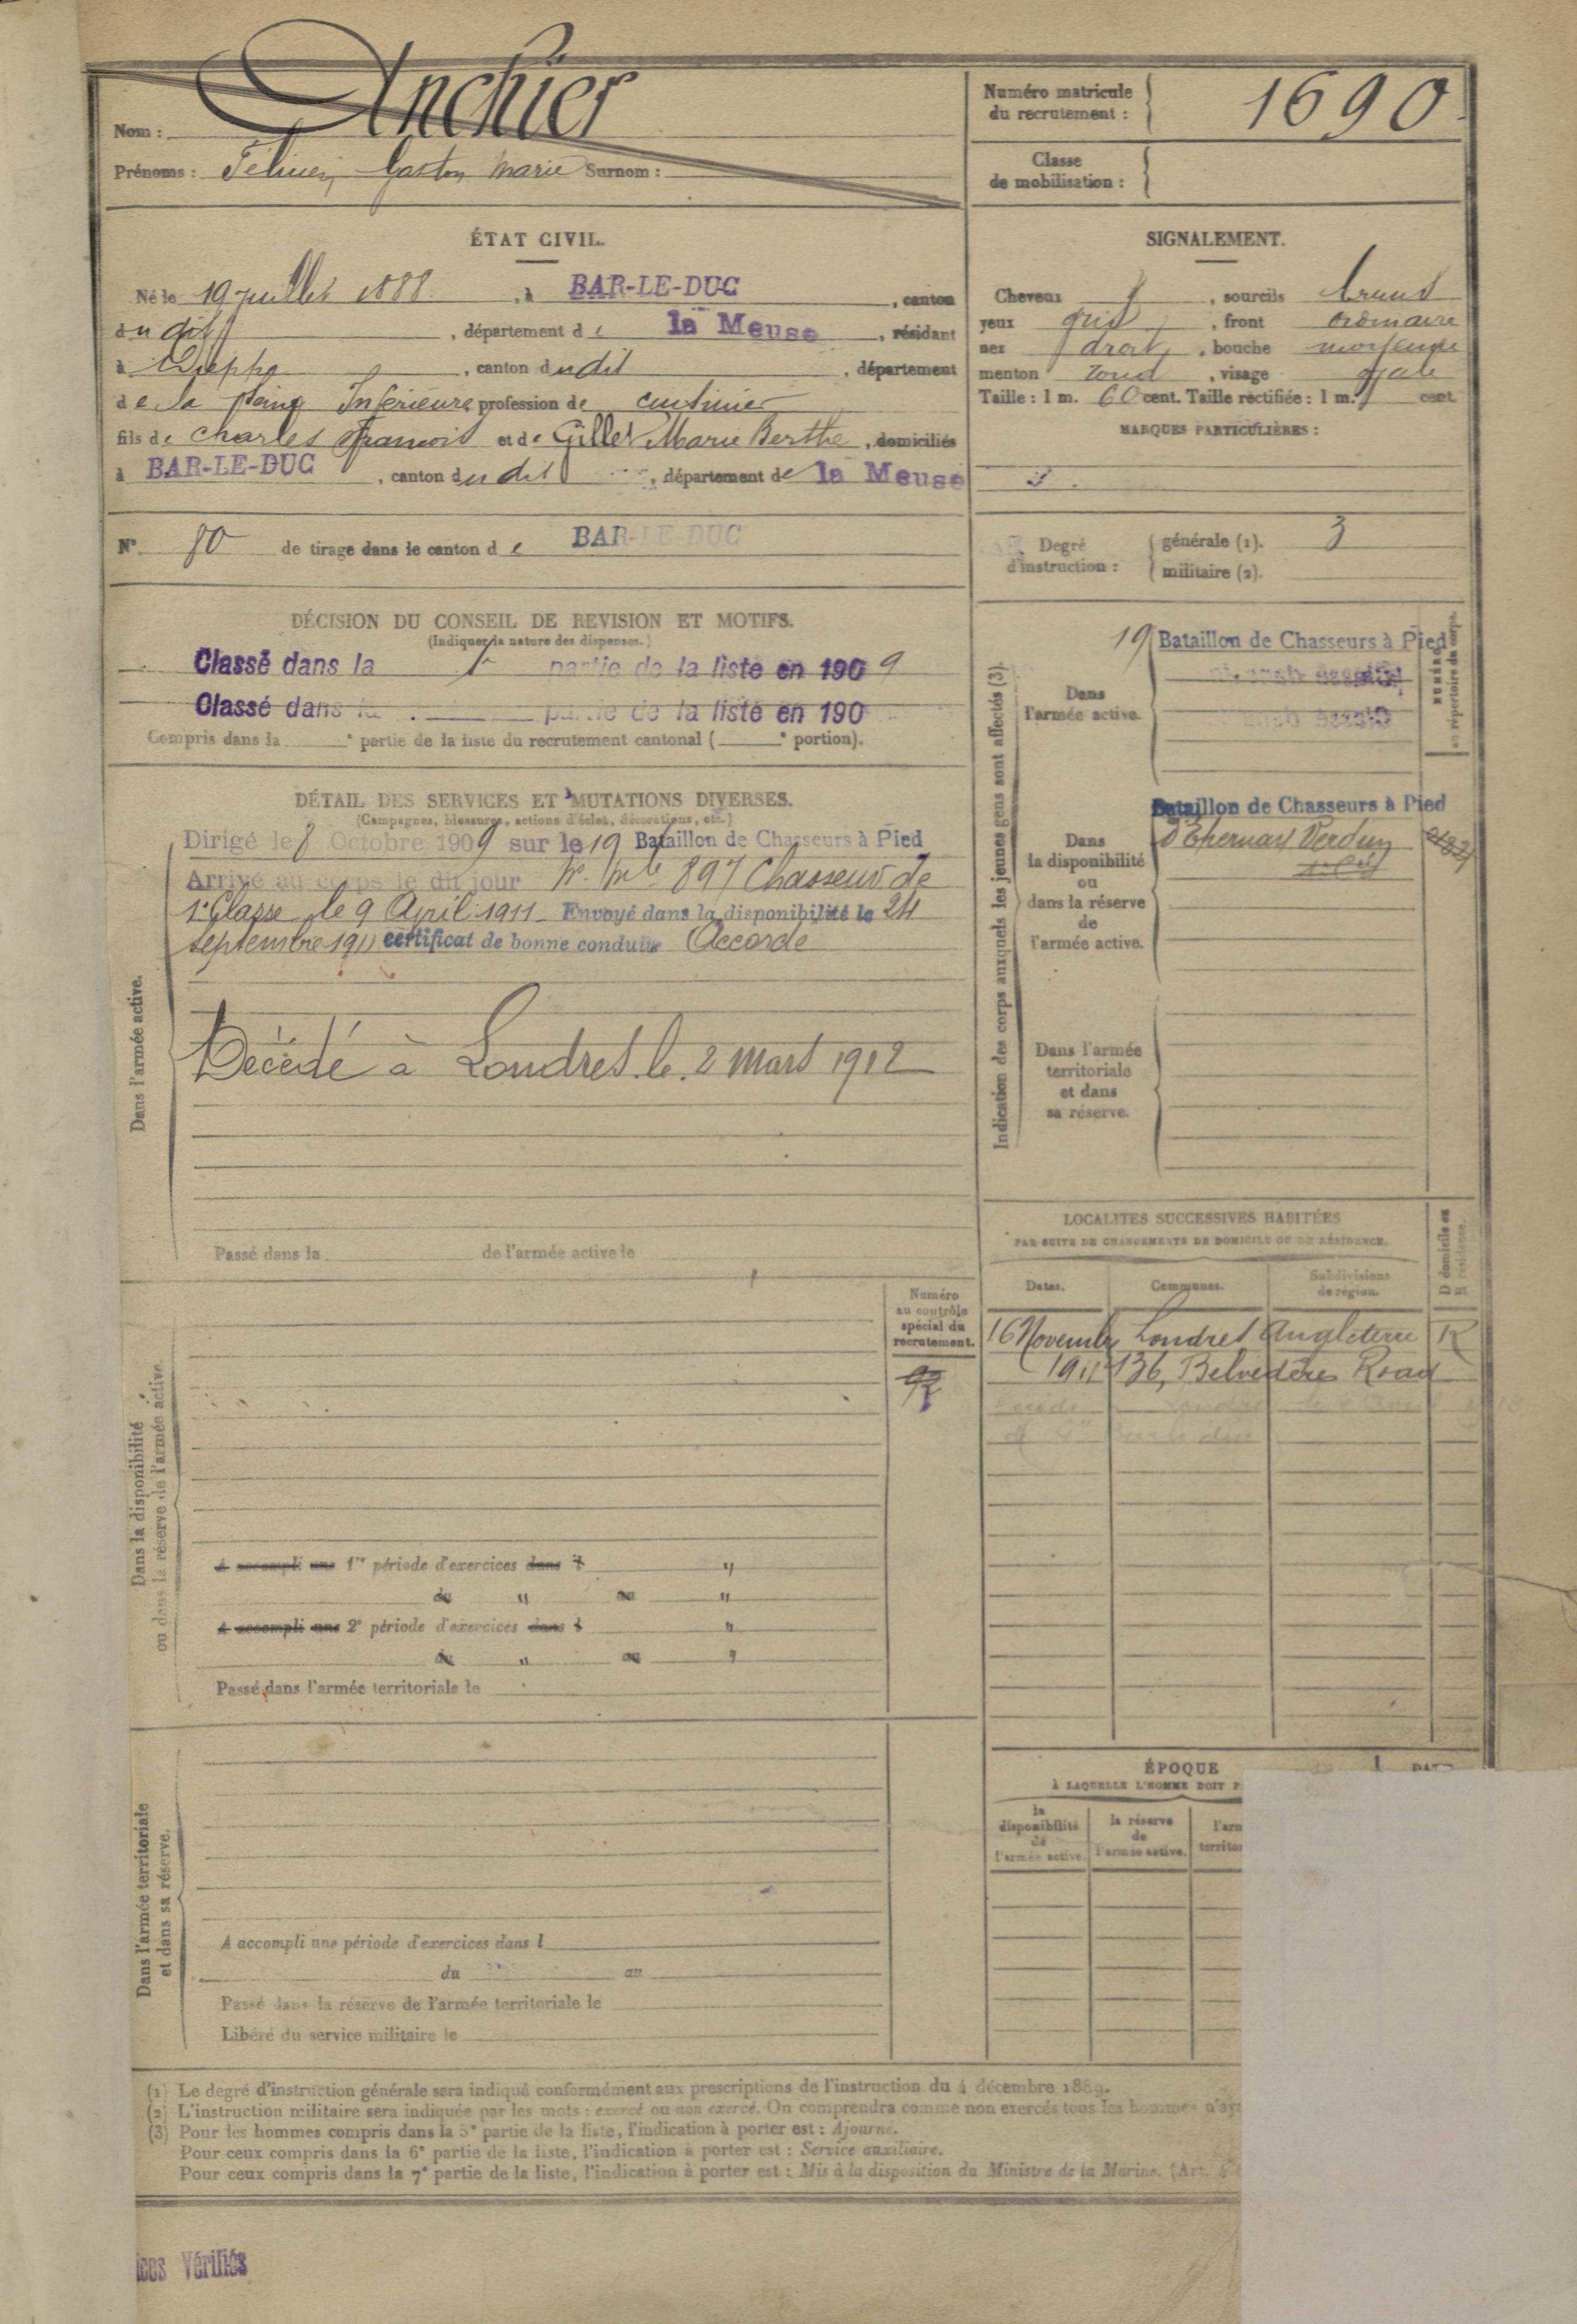 Nom : Anchier
Prénoms : Félicien Gaston Marie Surnom :
Numéro matricule du recrutement : 1690
Classe de mobilisation :
ÉTAT CIVIL.
Né le 19 juillet 1888, à BAR-LE-DUC, canton
du dit, département de la Meuse, résidant
à Dieppe, canton dudit, département
de la Seine Inférieure profession de cuisinier
fils de Charles François et de Gillet Marie Berthe, domiciliés
à BAR-LE-DUC, canton dudit, département de la Meuse
N° 80 de tirage dans le canton de BAR-LE-DUC
SIGNALEMENT.
Cheveux, sourcils bruns
yeux gris, front ordinaire
nez droit, bouche moyenne
menton rond, visage ovale
Taille : 1 m. 60 cent. Taille rectifiée : 1 m. cent.
MARQUES PARTICULIÈRES :
Degré d'instruction : générale (1). 3
militaire (2).
DÉCISION DU CONSEIL DE REVISION ET MOTIFS.
(Indiquer la nature des dispenses.)
Classé dans la 1e partie de la liste en 1909
Classé dans la partie de la liste en 190
Compris dans la ° partie de la liste du recrutement cantonal ( ° portion).
DÉTAIL DES SERVICES ET MUTATIONS DIVERSES.
(Campagnes, blessures, actions d'éclat, décorations, etc.)
Dirigé le 8 Octobre 1909 sur le 19 Bataillon de Chasseurs à Pied
Arrivé au corps le dit jour Nº Mle 897 Chasseur de
1e Classe le 9 Avril 1911 Envoyé dans la disponibilité le 24
septembre 1911 certificat de bonne conduite Accordé
Décédé à Londres le 2 mars 1912
Dans l'armée active.
Passé dans la de l'armée active le
Indication des corps auxquels les jeunes gens sont affectés (3).
Dans l'armée active.
19 Bataillon de Chasseurs à Pied
NUMÉRO au répertoire du corps.
Dans la disponibilité ou dans la réserve de l'armée active.
Bataillon de Chasseurs à Pied
Verdun
Dans l'armée territoriale et dans sa réserve.
LOCALITÉS SUCCESSIVES HABITÉES
PAR SUITE DE CHANGEMENTS DE DOMICILE OU DE RÉSIDENCE.
Dates. Communes. Subdivisions de région. D domicile ou R résidence.
16 Novembre Londres Angleterre R
1911 136, Belvedere Road
Numéro au contrôle spécial du recrutement.
Dans la disponibilité ou dans la réserve de l'armée active.
A accompli une 1re période d'exercices dans l
du au
A accompli une 2e période d'exercices dans l
du au
Passé dans l'armée territoriale le
Dans l'armée territoriale et dans sa réserve.
A accompli une période d'exercices dans l
du au
Passé dans la réserve de l'armée territoriale le
Libéré du service militaire le
ÉPOQUE
À LAQUELLE L'HOMME DOIT P
la disponibilité de l'armée active.
la réserve de l'armée active.
l'arm
territor
(1) Le degré d'instruction générale sera indiqué conformément aux prescriptions de l'instruction du 4 décembre 1889.
(2) L'instruction militaire sera indiquée par les mots : exercé ou non exercé. On comprendra comme non exercés tous les hommes n'ay
(3) Pour les hommes compris dans la 5e partie de la liste, l'indication à porter est : Ajourné.
Pour ceux compris dans la 6e partie de la liste, l'indication à porter est : Service auxiliaire.
Pour ceux compris dans la 7e partie de la liste, l'indication à porter est : Mis à la disposition du Ministre de la Marine. (Art. 4
ices Vérifiés